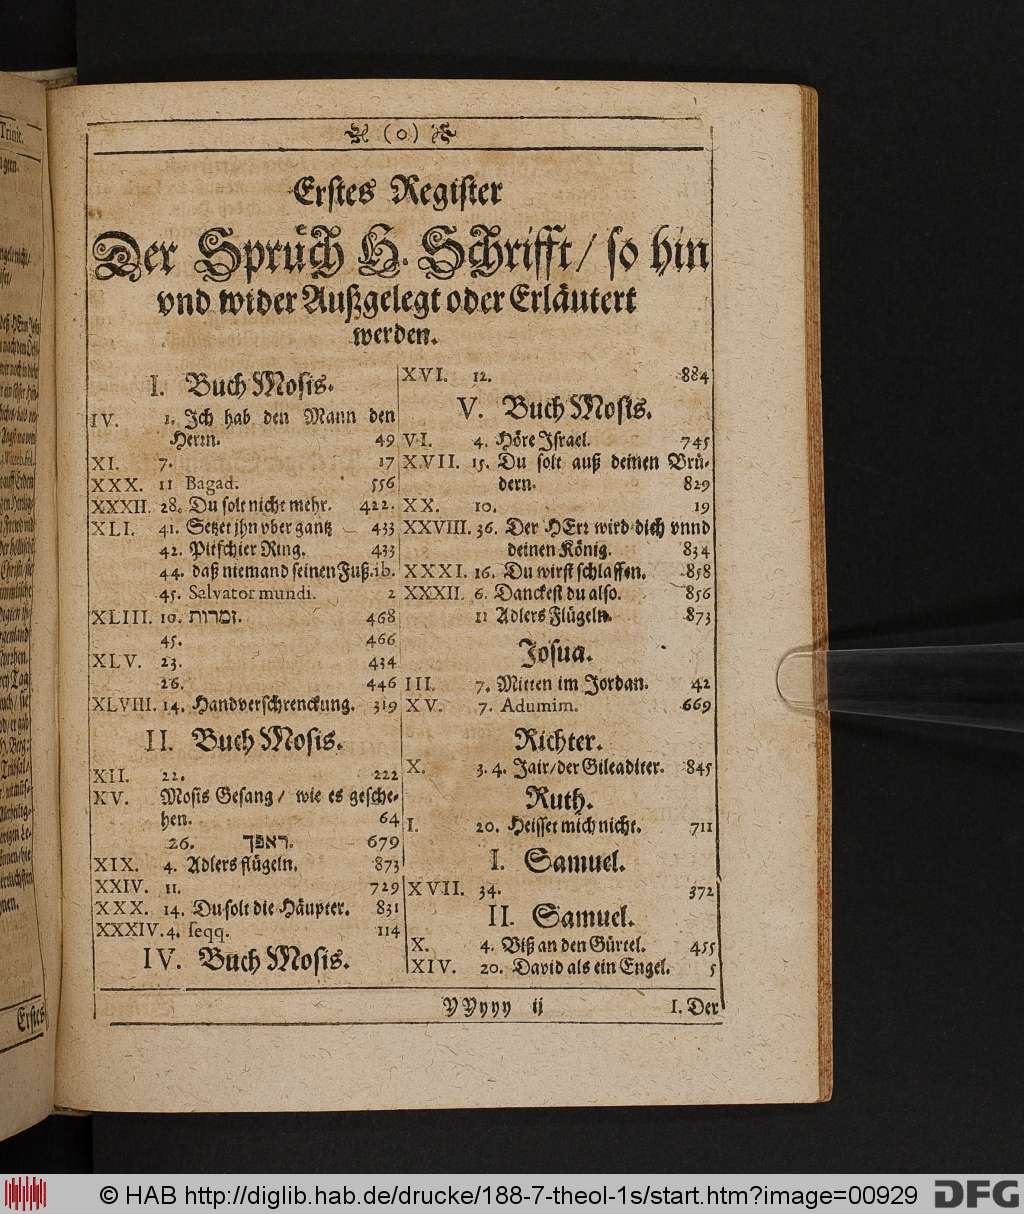 (o)
Erstes Register
Der Sprüch H. Schrifft / so hin
vnd wider Außgelegt oder Erläutert
werden.
I. Buch Mosis.
IV. 1. Ich hab den Mann den
Herrn. 49
XI. 7. 17
XXX. 11 Bagad. 556
XXXII. 28. Du solt nicht mehr. 422.
XLI. 41. Setzet jhn vber gantz 433
42. Pitschier Ring. 433
44. daß niemand seinen Fuß. ib.
45. Salvator mundi. 2
XLIII. 10. זמרות. 468
45. 466
XLV. 23. 434
26. 446
XLVIII. 14. Handverschrenckung. 319
II. Buch Mosis.
XII. 22. 222
XV. Mosis Gesang / wie es gesche-
hen. 64
26. 679
XIX. 4. Adlers flügeln. 873
XXIV. 11. 729
XXX. 14. Du solt die Häupter. 831
XXXIV. 4. seqq. 114
IV. Buch Mosis.
XVI. 12. 884
V. Buch Mosis.
VI. 4. Höre Israel. 745
XVII. 15. Du solt auß deinen Brü-
dern. 829
XX. 10. 19
XXVIII. 36. Der HErr wird dich vnnd
deinen König. 834
XXXI. 16. Du wirst schlaffen. 858
XXXII. 6. Danckest du also. 856
11 Adlers Flügeln. 873
Josua.
III. 7. Mitten im Jordan. 42
XV. 7. Adumim. 669
Richter.
X. 3. 4. Jair / der Gileaditer. 845
Ruth.
I. 20. Heisset mich nicht. 711
I. Samuel.
XVII. 34. 372
II. Samuel.
X. 4. Biß an den Gürtel. 455
XIV. 20. David als ein Engel. 5
Y Yyyy ij I. Der
Trinit.
Erstes
© HAB http://diglib.hab.de/drucke/188-7-theol-1s/start.htm?image=00929
DFG